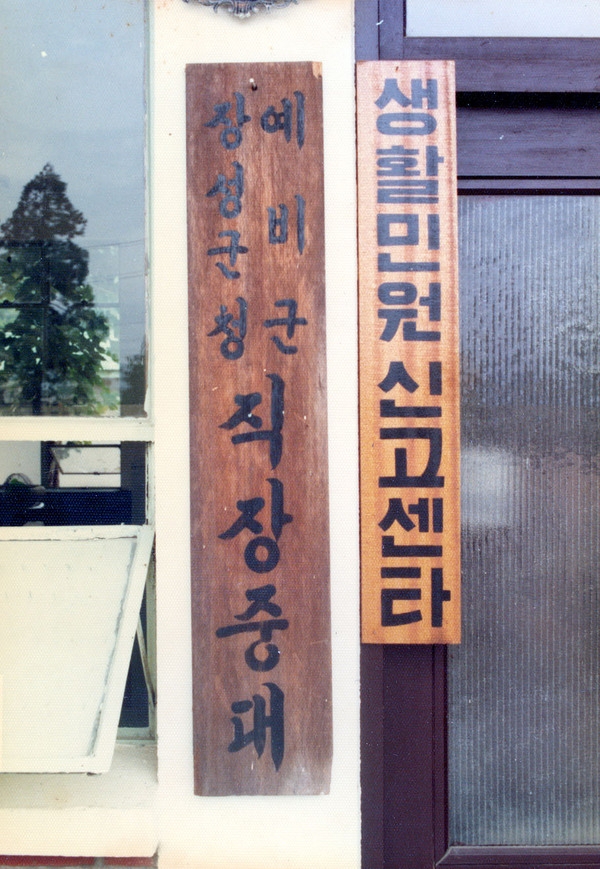 예비군
장성군청
직장중대
생활민원신고센타